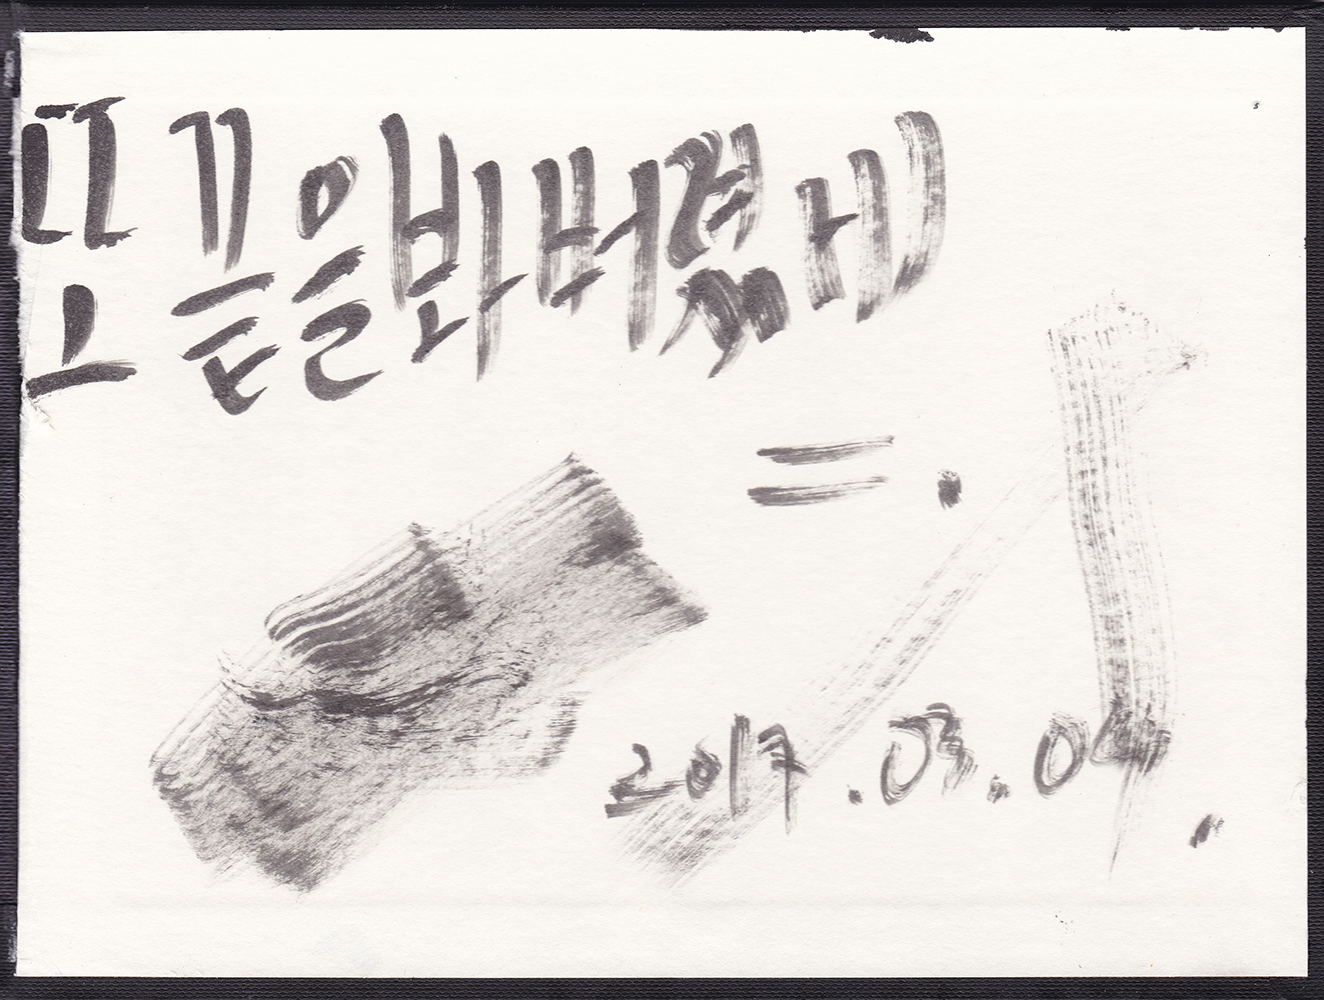 또 끝을봐버렸네
=.
2017.03.04.